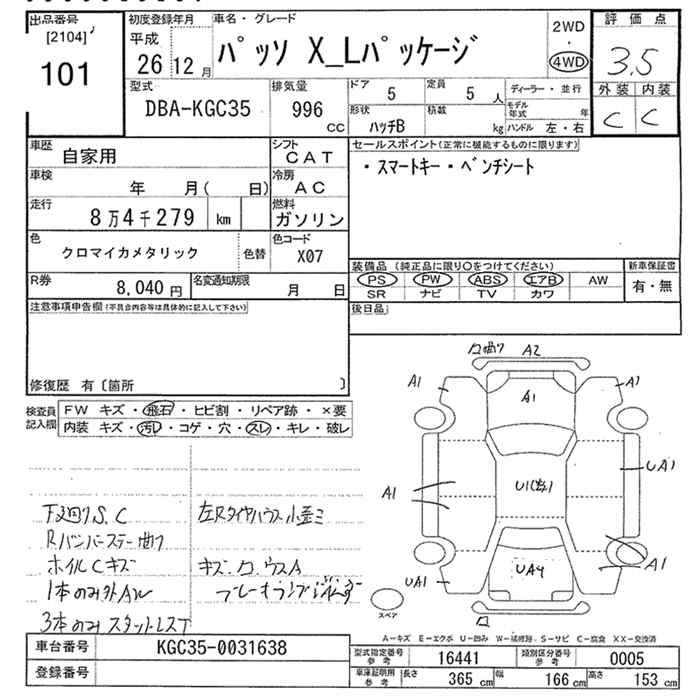 出品番号 初度登録年月 車名・グレード 2WD 評価点
[2104] 平成 パッソ X_Lパッケージ ・ 3.5
101 26年 12月 4WD
型式 排気量 ドア 定員 ディーラー・並行 外装 内装
DBA-KGC35 996 cc 5 5人 モデル年式 年 C C
形状 積載 ハンドル 左・右
ハッチB kg
車歴 自家用 シフト CAT セールスポイント(正常に機能するものに限ります)
車検 年 月( 日) 冷房 AC ・スマートキー・ベンチシート
走行 8万4千279 km 燃料 ガソリン
色 クロマイカメタリック 色替 色コード X07
R券 8,040円 名変通知期限 月 日
装備品(純正品に限り○をつけてください) 新車保証書
PS PW ABS エアB AW 有・無
SR ナビ TV カワ
注意事項申告欄(不具合内容等は具体的に記入して下さい) 後日品
修復歴 有〔箇所 〕
検査員記入欄 FW キズ・飛石・ヒビ割・リペア跡・×要
内装 キズ・汚レ・コゲ・穴・スレ・キレ・破レ
下廻りS.C
Rバンパーステー曲り
ホイルCキズ
1本のみ外AW
3本のみスタットレスT
左Rタイヤハウス小歪ミ
ロ曲り A2
A1 A1
A1
A1 U1(数) UA1
A1
UA1 UA4
スペア ロ
A-キズ E-エクボ U-凹み W-補修跡 S-サビ C-腐食 XX-交換済
車台番号 KGC35-0031638
登録番号
型式指定番号 参考 16441 類別区分番号 参考 0005
車庫証明用 参考 長さ 365 cm 幅 166 cm 高さ 153 cm